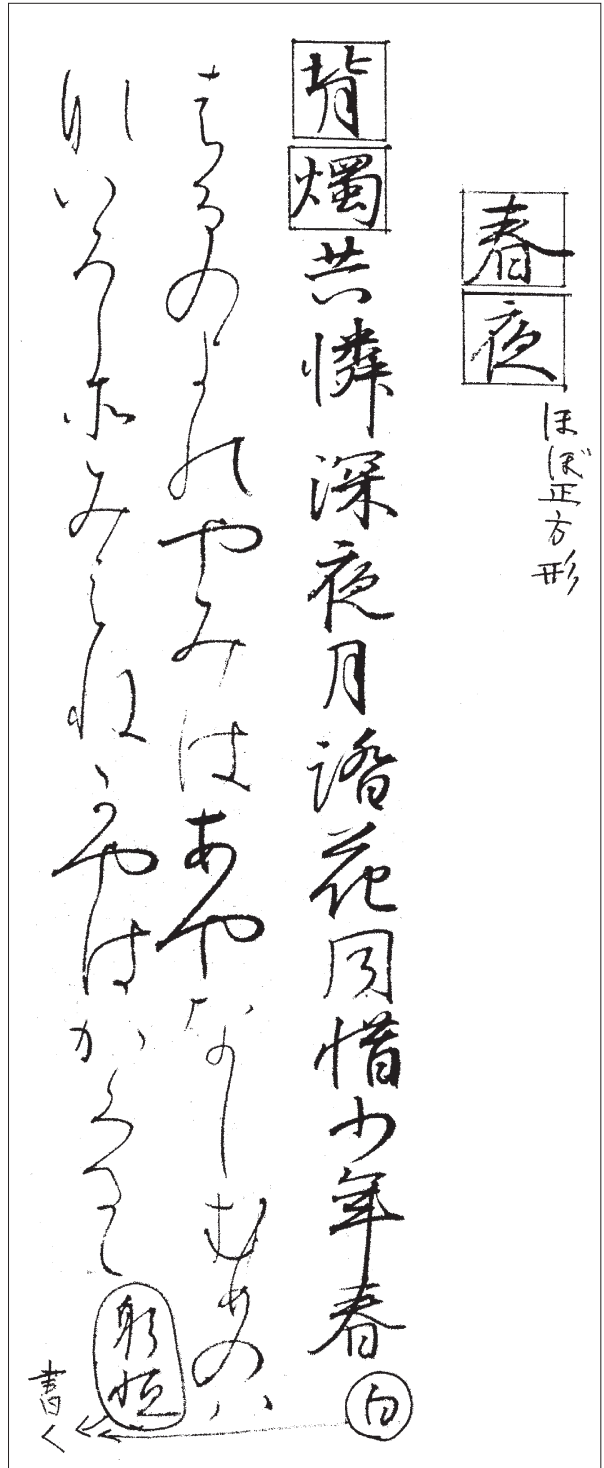 春夜
ほぼ正方形
背燭共憐深夜月踏花同惜少年春
白
はるのよのやみはあやなしむめのハ
ないろこそみえねかやはかくるゝ
躬恒
書く